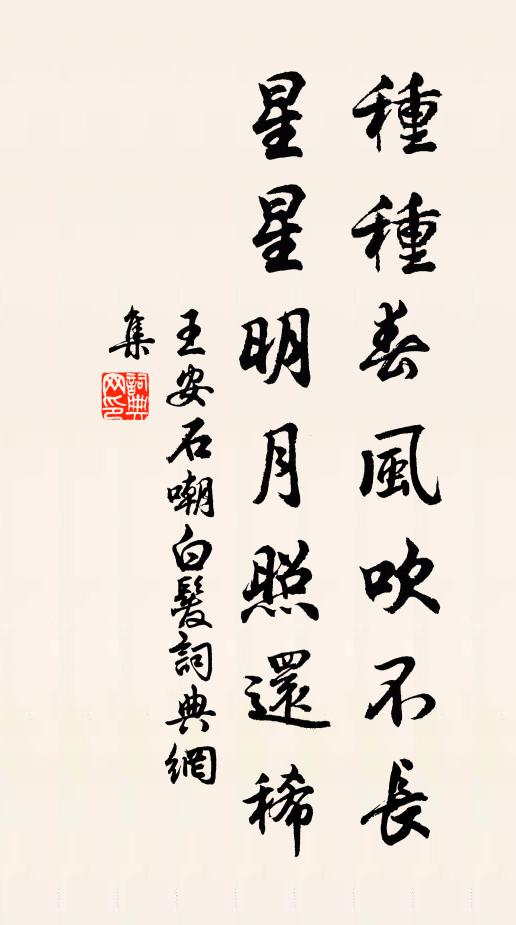 種種春風吹不長
星星明月照還稀
王安石嘲白髮詞典網
集
詞典
网印